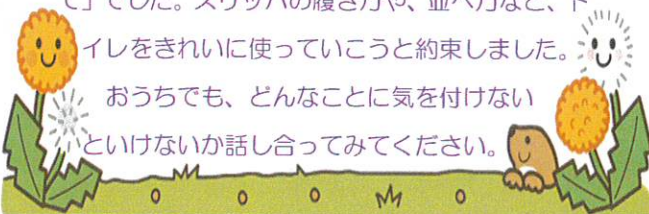 て」でした。スリッパの履き方や、並べ方など、ト
イレをきれいに使っていこうと約束しました。
おうちでも、どんなことに気を付けない
といけないか話し合ってみてください。